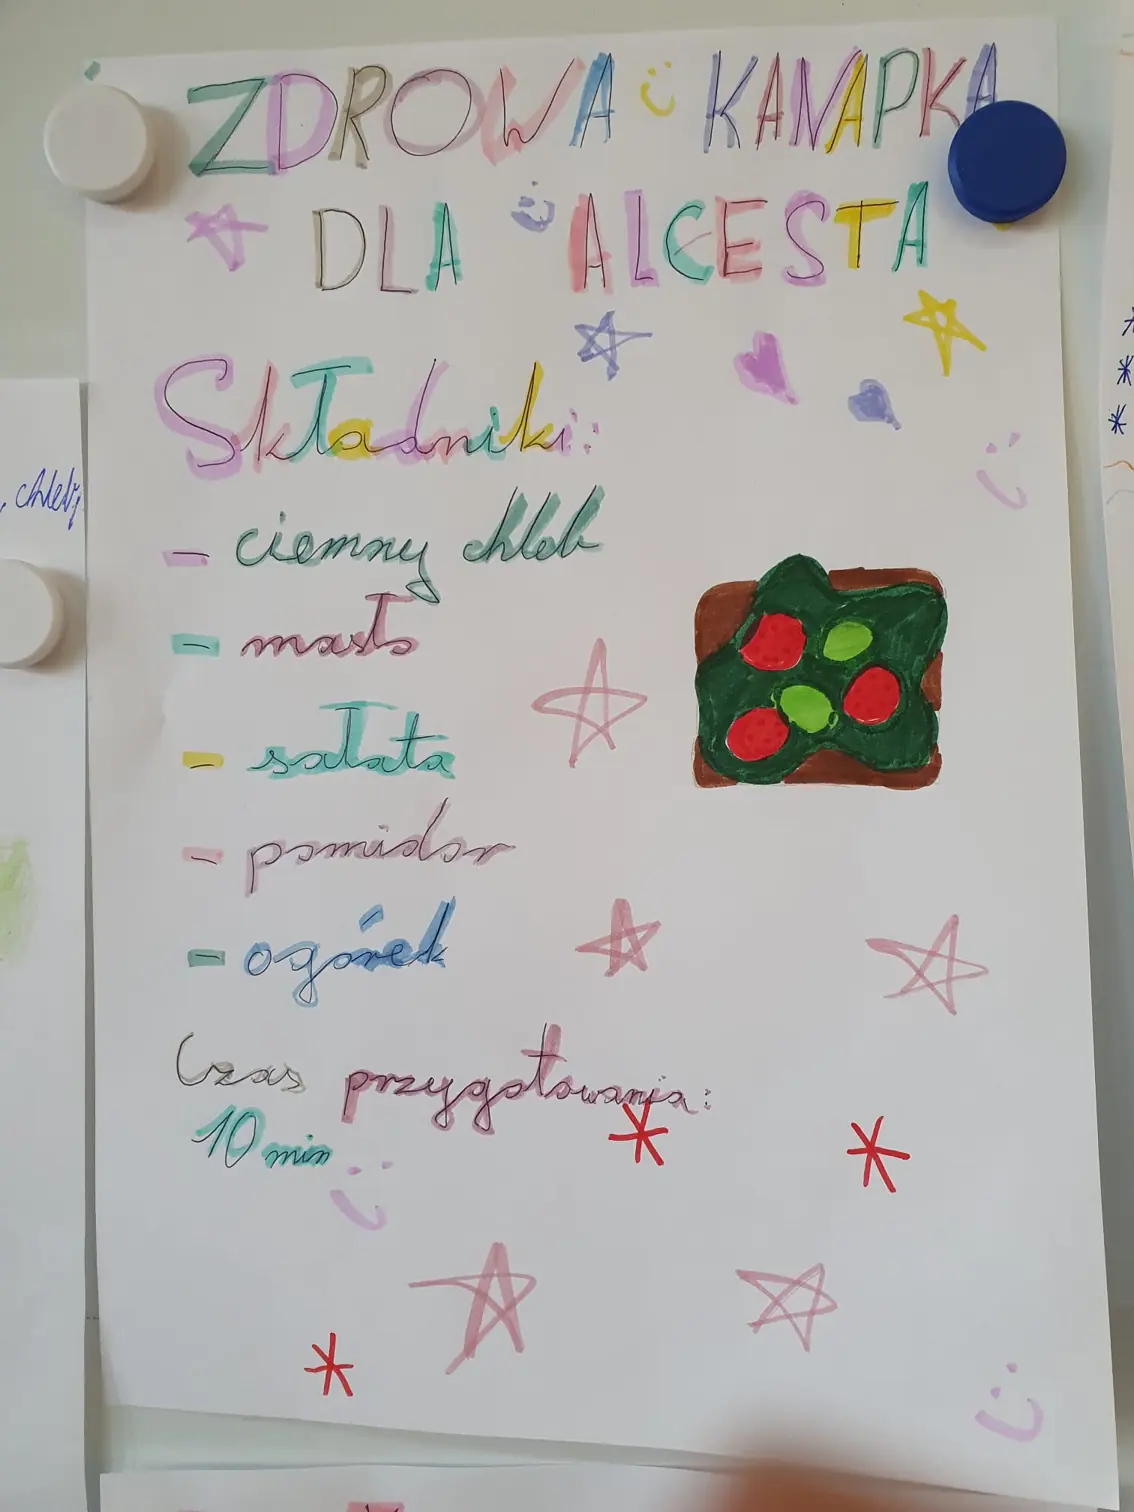 ZDROWA KANAPKA
DLA ALCESTA
Składniki:
- ciemny chleb
- masło
- sałata
- pomidor
- ogórek
Czas przygotowania:
10 min
, chleb,